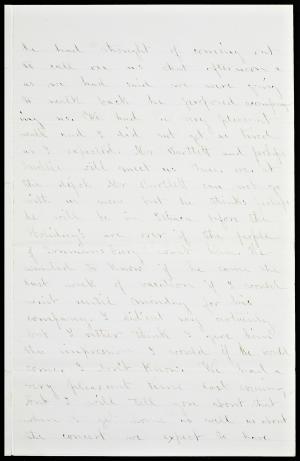 he had thought of coming out
to call on us that afternoon &
as we had said we were going
to walk back he proposed accompany
ing us. We had a very pleasant
walk and I did not get as tired
as I expected. Mr Bartlett and
will meet us Tues. eve. at
the depot Mr Bartlett can not go
with us now but he thinks
he will be in before the
Holidays are over if the people
of want him. He
wanted to know if he came the
last week of vacation if I would
wait until Monday for his
company. I did not say certainly
but I rather think I gave him
the impression I would if he would
come. I don't know. We had a
very pleasant time last evening,
but I will tell you about that
when I get home as well as about
the concert we expect to have